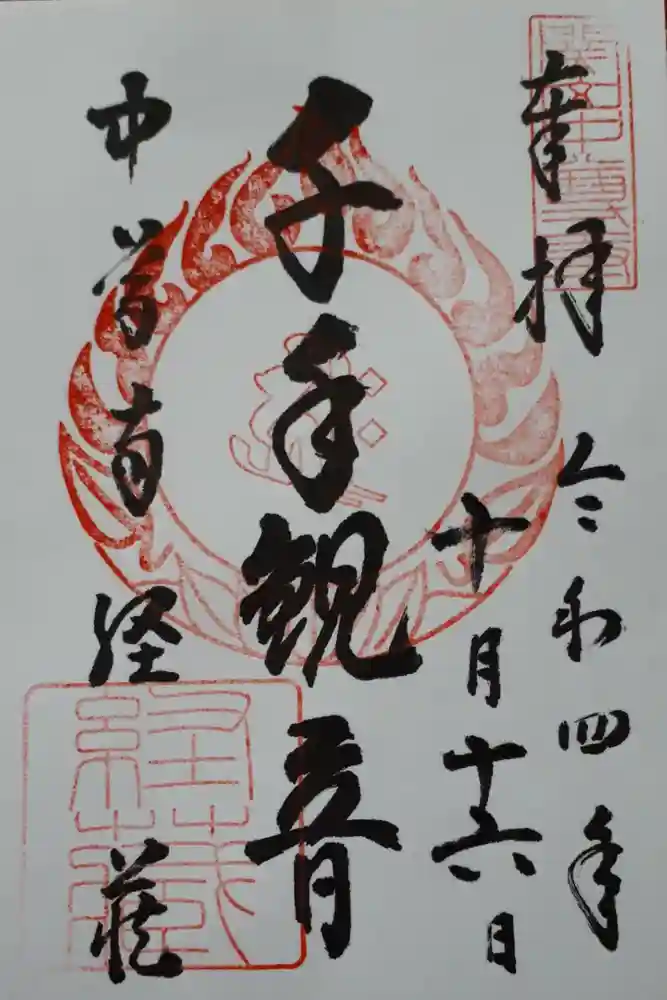 奉拝
令和四年
十月十六日
千手観音
中尊寺
経蔵
經藏